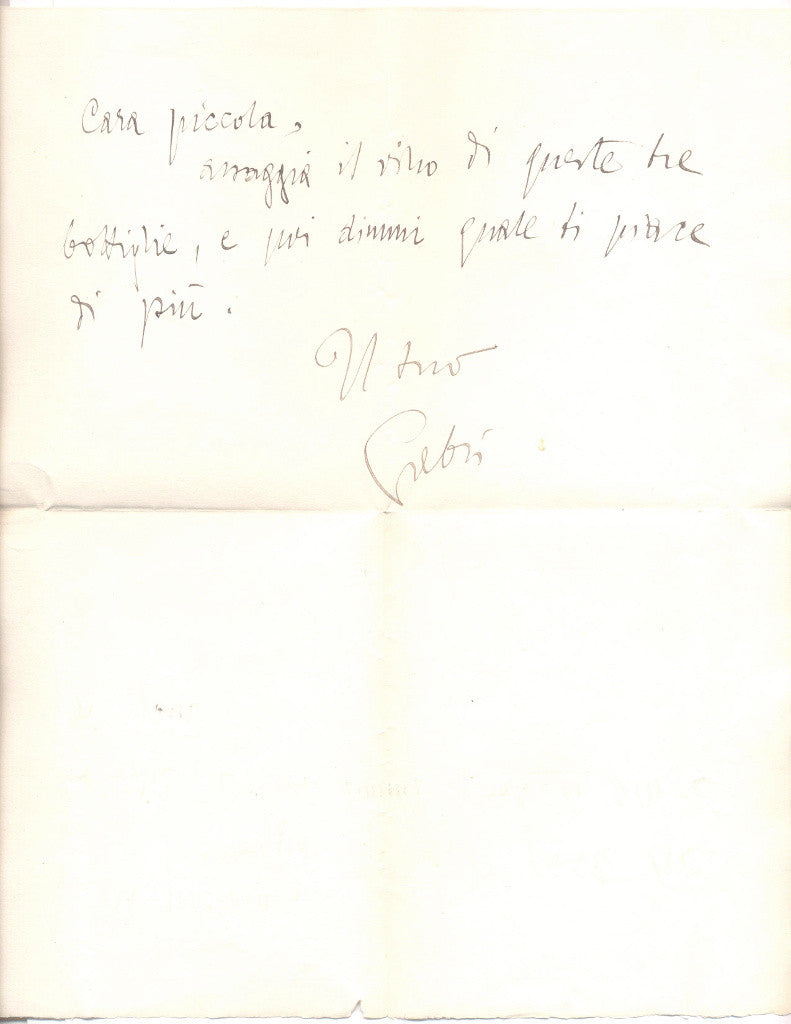 Cara piccola,
assaggia il vino di queste tre
bottiglie, e poi dimmi quale ti piace
di più.
Il tuo
Gabri